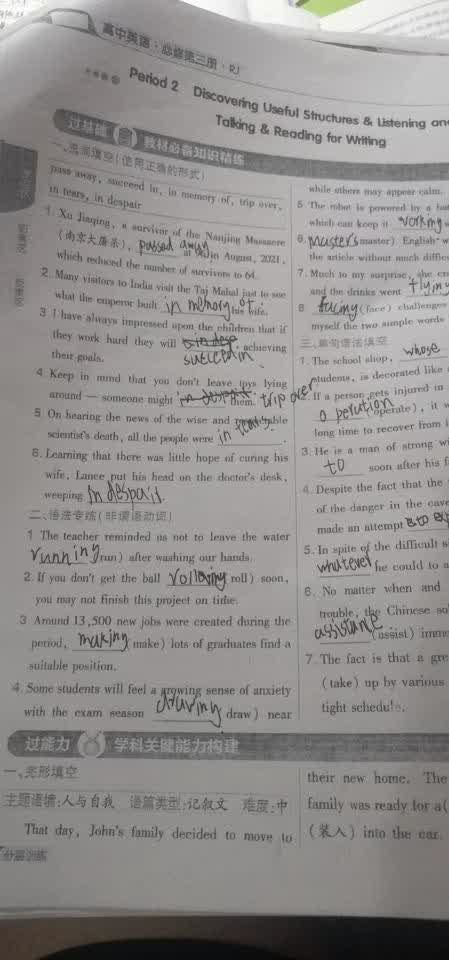 高中英语·必修第三册·RJ
Period 2 Discovering Useful Structures & Listening and
Talking & Reading for Writing
过基础 教材必备知识精练
一、选词填空(使用正确的形式)
pass away, succeed in, in memory of, trip over,
in tears, in despair
1. Xu Jiaqing, a survivor of the Nanjing Massacre
(南京大屠杀), passed away at in August, 2021,
which reduced the number of survivors to 64.
2. Many visitors to India visit the Taj Mahal just to see
what the emperor built in memory of his wife.
3 I have always impressed upon the children that if
they work hard they will succeed in achieving
their goals.
4. Keep in mind that you don't leave toys lying
around — someone might trip over them.
5 On hearing the news of the wise and
scientist's death, all the people were in tears.
6. Learning that there was little hope of curing his
wife, Lance put his head on the doctor's desk,
weeping in despair.
二、语法专练(非谓语动词)
1 The teacher reminded us not to leave the water
running run) after washing our hands.
2. If you don't get the ball rolling roll) soon,
you may not finish this project on time.
3 Around 13,500 new jobs were created during the
period, making make) lots of graduates find a
suitable position.
4. Some students will feel a growing sense of anxiety
with the exam season drawing draw) near
过能力 学科关键能力构建
一、完形填空
主题语境:人与自我 语篇类型:记叙文 难度:中
That day, John's family decided to move to
分层训练
while others may appear calm.
5 The robot is powered by a
which can keep it working
6. masters master) English-w
the article without much diffic
7. Much to my surprise, she
and the drinks went flying
8 facing (face) challenges
myself the two simple words
三、单句语法填空
1. The school shop, whose
students, is decorated like
2. If a person gets injured in
operate), it
long time to recover from
3. He is a man of strong wi
to soon after his f
4. Despite the fact that the
of the danger in the cave
made an attempt
5. In spite of the difficult s
whatever he could to a
6. No matter when and
trouble, the Chinese
assistance (assist) imm
7. The fact is that a gre
(take) up by various
tight schedule.
their new home. The
family was ready for a(
(装入) into the car.